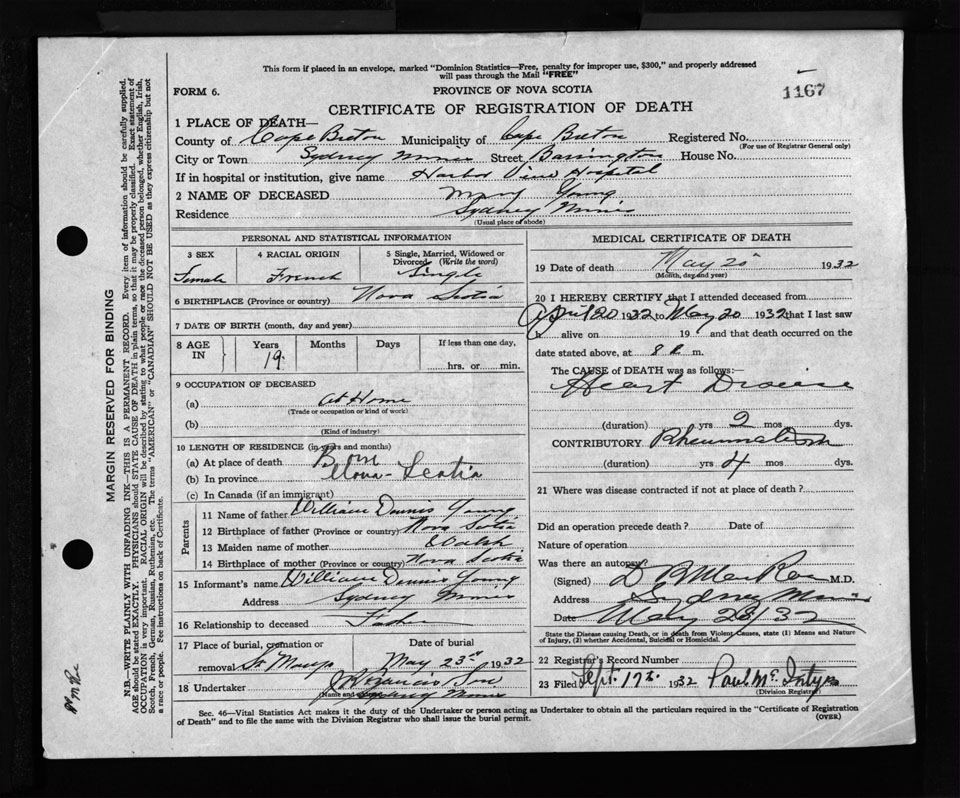 This form if placed in an envelope, marked "Dominion Statistics—Free, penalty for improper use, $300," and properly addressed
will pass through the Mail "FREE"
1167
FORM 6.
PROVINCE OF NOVA SCOTIA
CERTIFICATE OF REGISTRATION OF DEATH
1 PLACE OF DEATH—
County of Cape Breton Municipality of Cape Breton Registered No.
(For use of Registrar General only)
City or Town Sydney Mines Street Barrington House No.
If in hospital or institution, give name Harbor View Hospital
2 NAME OF DECEASED Mary Young
Residence Sydney Mines
(Usual place of abode)
PERSONAL AND STATISTICAL INFORMATION
3 SEX 4 RACIAL ORIGIN 5 Single, Married, Widowed or
Divorced (Write the word)
Female French Single
6 BIRTHPLACE (Province or country) Nova Scotia
7 DATE OF BIRTH (month, day and year)
8 AGE IN Years Months Days If less than one day,
19 hrs. or min.
9 OCCUPATION OF DECEASED
(a) At Home
(Trade or occupation or kind of work)
(b)
(Kind of industry)
10 LENGTH OF RESIDENCE (in years and months)
(a) At place of death Born
(b) In province Nova-Scotia
(c) In Canada (if an immigrant)
Parents
11 Name of father William Dennis Young
12 Birthplace of father (Province or country) Nova Scotia
13 Maiden name of mother Walsh
14 Birthplace of mother (Province or country) Nova Scotia
15 Informant's name William Dennis Young
Address Sydney Mines
16 Relationship to deceased Father
17 Place of burial, cremation or Date of burial
removal St Marys May 23rd 1932
18 Undertaker Son
(Name and address)
Sydney Mines
MEDICAL CERTIFICATE OF DEATH
19 Date of death May 20 1932
(Month, day and year)
20 I HEREBY CERTIFY that I attended deceased from
April 20 1932 to May 20 1932 that I last saw
h alive on 19 and that death occurred on the
date stated above, at 8 m.
The CAUSE of DEATH was as follows:—
Heart Disease
(duration) yrs 2 mos dys.
CONTRIBUTORY Rheumatism
(duration) yrs 4 mos dys.
21 Where was disease contracted if not at place of death?
Did an operation precede death? Date of
Nature of operation
Was there an autopsy?
(Signed) M.D.
Address Sydney Mines
Date May 20/32
State the Disease causing Death, or in death from Violent Causes, state (1) Means and Nature
of Injury, (2) whether Accidental, Suicidal or Homicidal.
22 Registrar's Record Number
23 Filed Sept. 17th 1932 Paul McIntyre
(Division Registrar)
Sec. 46—Vital Statistics Act makes it the duty of the Undertaker or person acting as Undertaker to obtain all the particulars required in the "Certificate of Registration
of Death" and to file the same with the Division Registrar who shall issue the burial permit.
(OVER)
MARGIN RESERVED FOR BINDING
N.B.—WRITE PLAINLY WITH UNFADING INK—THIS IS A PERMANENT RECORD. Every item of information should be carefully supplied.
AGE should be stated EXACTLY. PHYSICIANS should STATE CAUSE OF DEATH in plain terms, so that it may be properly classified. Exact statement of
OCCUPATION is very important. RACIAL ORIGIN will be described by stating to what people or race the deceased person belonged, whether English, Irish,
Scotch, French, German, Russian, Ruthenian, etc. The terms "AMERICAN" or "CANADIAN" SHOULD NOT BE USED as they express citizenship but not
a race or people. Fee instructions on back of Certificate.